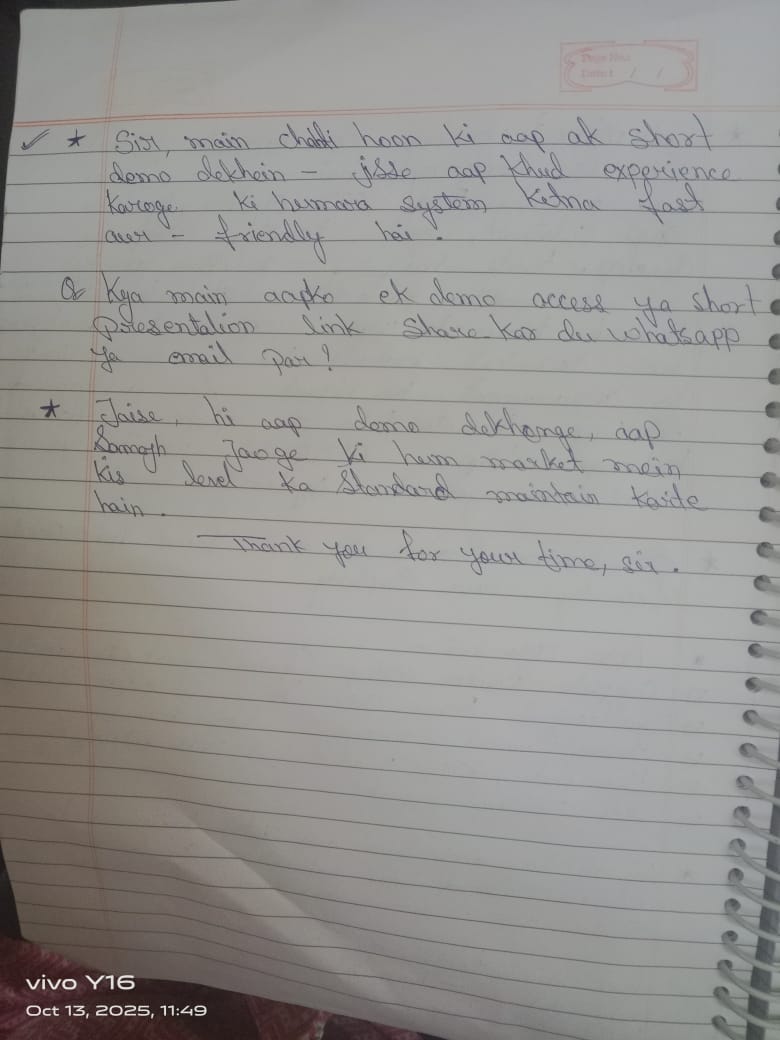 Page No.:
Date: / /
✓ * Sir, main chahti hoon ki aap ak short
demo dekhein - jisse aap khud experience
karoge ki humara system kitna fast
aur - friendly hai.
Q Kya main aapko ek demo access ya short
presentation link share kar du whatsapp
ya email par?
* Jaise, hi aap demo dekhenge, aap
Samajh Jaoge ki hum market mein
kis level ka Standard maintain karte
hain.
Thank you for your time, sir.
vivo Y16
Oct 13, 2025, 11:49